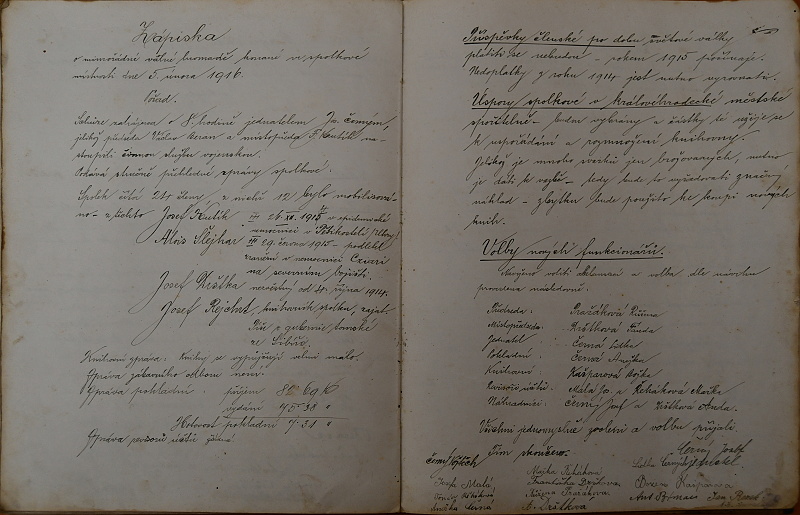 Zápiska
o mimořádné valné hromadě konané v spolkové
místnosti dne 5. února 1916.
Pořad.
Schůze zahájena o 8. hodině jednatelem Jos. Černým,
jelikož předseda Václav Beran a místopředs. F. Kubík na-
stoupili činnou službu vojenskou.
Podává stručně přehledné zprávy spolkové.
Spolek čítá členy, z nichž 12 bylo mobilisová-
no - z těchto Josef Kubík 26. XI. 1915 v epidemické
nemocnici v
Alois Šlejhar 29. června 1915 - podlehl
zranění v nemocnici
na severním bojišti.
Josef Drštka nezvěstný od října 1914.
Josef Rejchrt, knihovník spolku, zajat.
Píše z gubernie tomské
ze Sibiře.
Knihovní zpráva: Knihy se vypůjčují velmi málo.
Zpráva zábavního odboru není.
Zpráva pokladní: příjem 82.69 K
vydání 75.38 "
Hotovost pokladní 7.31 "
Zpráva revisorů účtů žádná
Příspěvky členské po dobu světové války
platiti se nebudou - rokem 1915 počínaje.
Nedoplatky z roku 1914 jest nutno vyrovnati.
Úspory spolkové v královéhradecké městské
spořitelně - budou vybrány a částky té užije se
k uspořádání a rozmnožení knihovny.
Jelikož je mnoho svazků jen brožovaných, nutno
je dáti k vazbě - tedy bude to vyžadovati značný
náklad - zbytku bude použito ke koupi nových
knih.
Volby nových funkcionářů.
Navrženo voliti aklamací a volba dle návrhu
provedena následovně:
Předseda: Pražáková Růžena
Místopředseda: Drštková Fanda
Jednatel: Černá Lidka
Pokladní: Černá Anežka
Knihovní: Kašparová Božka
Revisoři účtů: Malá Jos. a Řeháková Mařka
Náhradníci: Černý Josef a Drštková Anda.
Všichni jednomyslně zvoleni a volbu přijali.
Tím skončeno.
Černý Josef
jednatel
Černý Vojtěch
Josefa Malá
Božena Kašparová
Růžena Pražáková
Anežka Černá
A. Drštková